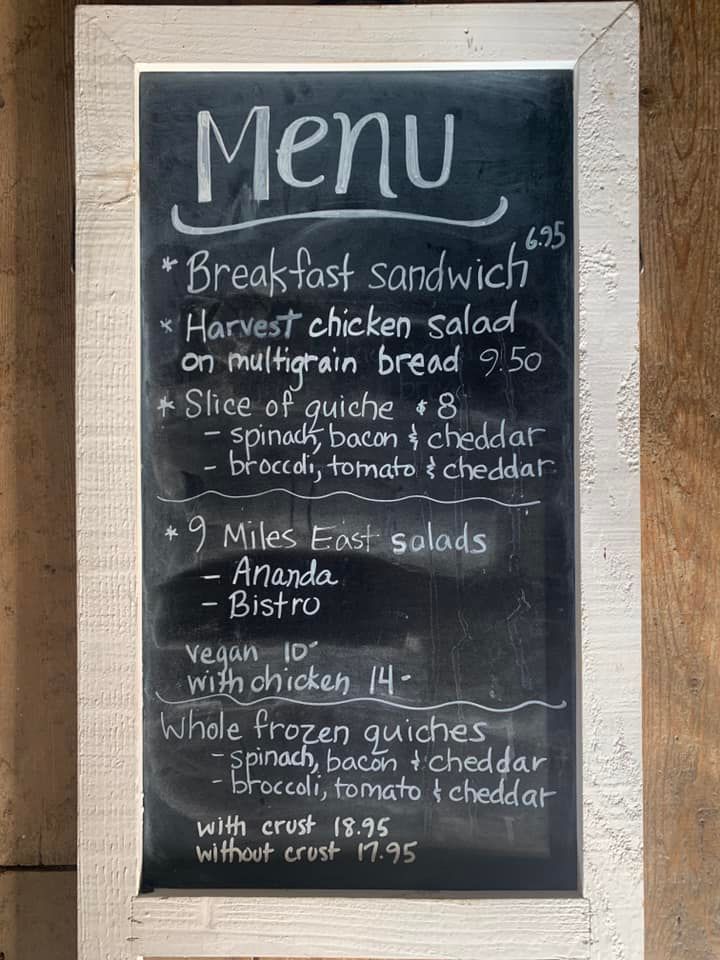 Menu
* Breakfast sandwich 6.95
* Harvest chicken salad
on multigrain bread 9.50
* Slice of quiche $8
- spinach, bacon & cheddar
- broccoli, tomato & cheddar
* 9 Miles East salads
- Ananda
- Bistro
vegan 10-
with chicken 14-
Whole frozen quiches
- spinach, bacon & cheddar
- broccoli, tomato & cheddar
with crust 18.95
without crust 17.95